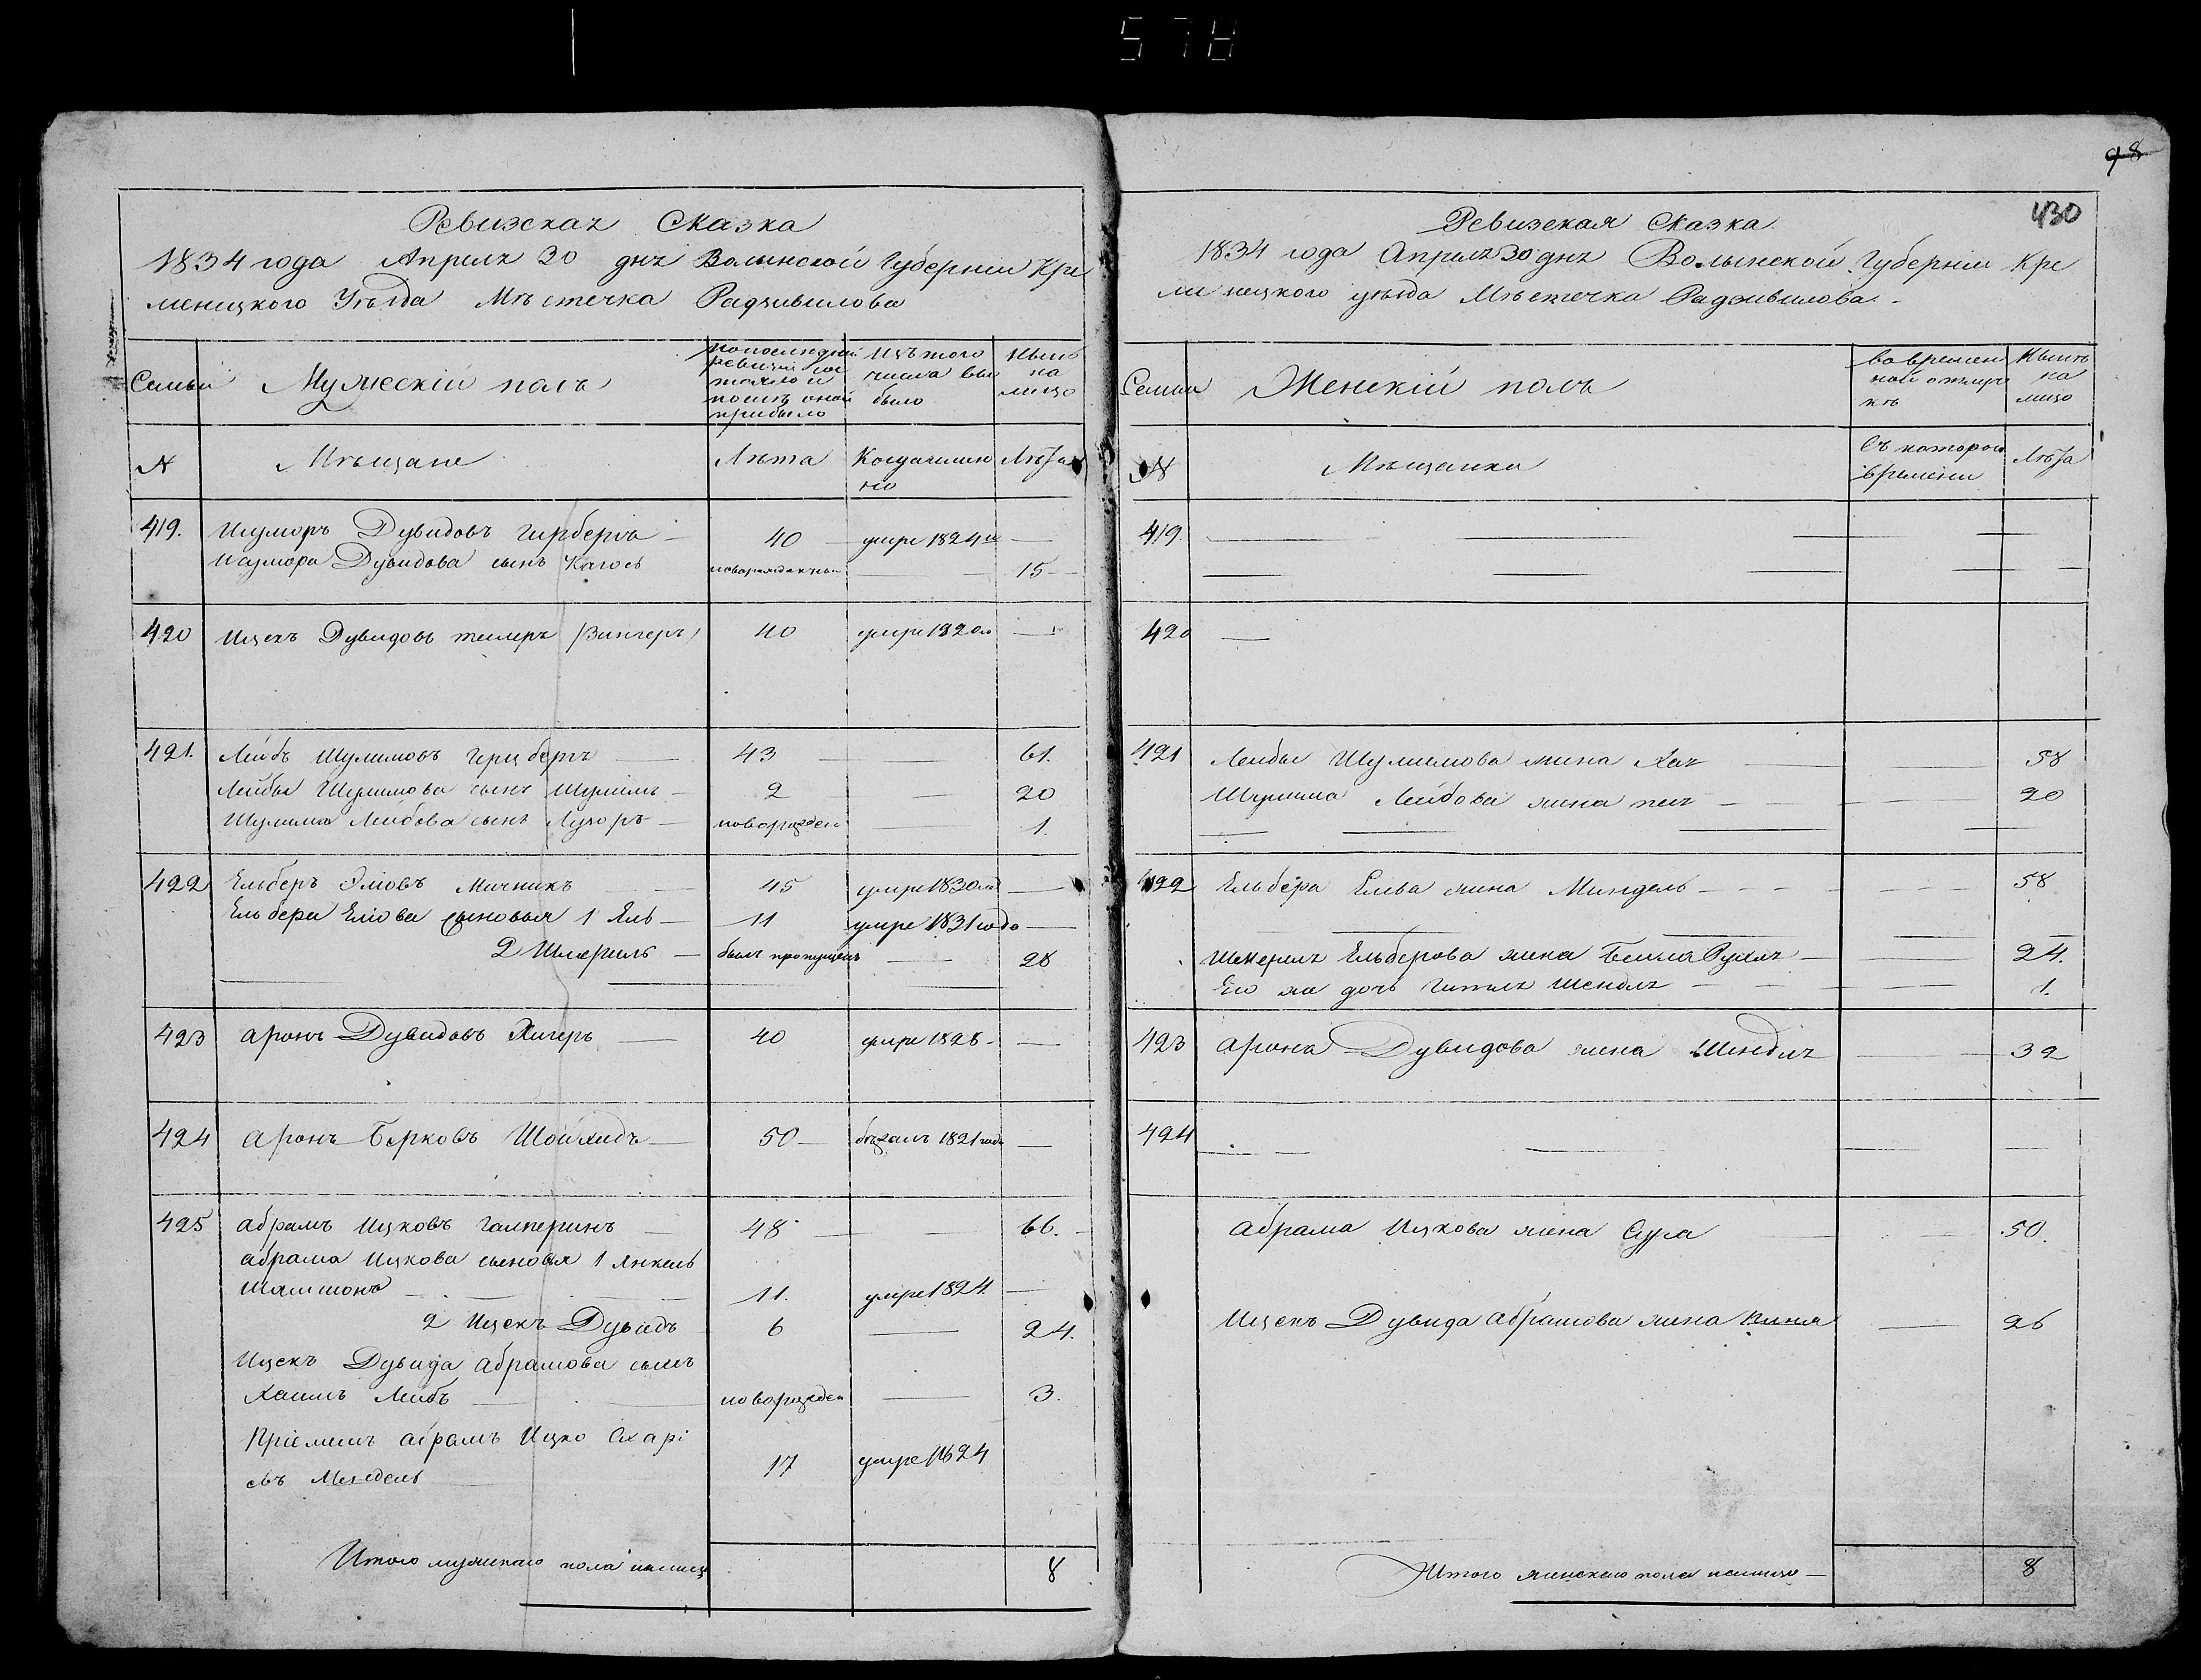 578
Ревизская Сказка
1834 года Апреля 30 дня Волынской Губернии Кре
менецкого Уѣзда Мѣстечка Радзивилова
Семьи
Мужескій полъ
по последней
ревизіи сос
тояло и
послѣ оной
прибыло
Изъ того
числа вы
было
Нынѣ
на
лицо
N
Мѣщане
Лѣта
Когда имен
но
Лѣта
419.
Дувидовъ
40
умре 1824
Дувидова сынъ
новорожденный
15
420
Ицекъ Дувидовъ
40
умре 1820
421.
Лейбъ Шулимовъ Герцбергъ
43
61.
Лейбы Шулимова сынъ Шулимъ
2
20
Шулима Лейбова сынъ
новорожден
1.
422
Ельберъ Эліовъ Мичникъ
45
умре 1830
Ельбера Еліова сыновья 1 Яль
11
умре 1831 года
2
былъ пропущенъ
28
423
Аронъ Дувидовъ
40
умре 1828
424
Аронъ Берковъ
50
бѣжалъ 1821 года
425
Абрамъ Ицковъ Галперинъ
48
66.
Абрама Ицкова сыновья 1 Янкель
Шамшонъ
11.
умре 1824.
2 Ицекъ Дувидъ
6
24.
Ицекъ Дувида Абрамова сынъ
Хаимъ Лейбъ
новорожден
3.
Пріемышъ Абрамъ Ицко
Мендель
17
умре 1824
Итого мужескаго пола налицо
8
98
430
Ревизская Сказка
1834 года Апреля 30 дня Волынской Губерніи Кре
менецкого уѣзда Мѣстечка Радзивилова
Семьи
Женскій полъ
во времен
ной отлуч
кѣ
Нынѣ
на
лицо
N
Мѣщанки
Съ которого
времени
Лѣта
419.
420
421
Лейбы Шулимова жена Хая
58
Шулима Лейбова жена
20
422
Ельбера Елева жена Миндель
58
Ельберова жена Бейла Рухля
24.
Его же дочь Гитля Шендля
1.
423
Арона Дувидова жена Шендля
32
424
Абрама Ицкова жена Сура
50.
Ицекъ Дувида Абрамова жена
26
Итого женскаго пола налицо
8